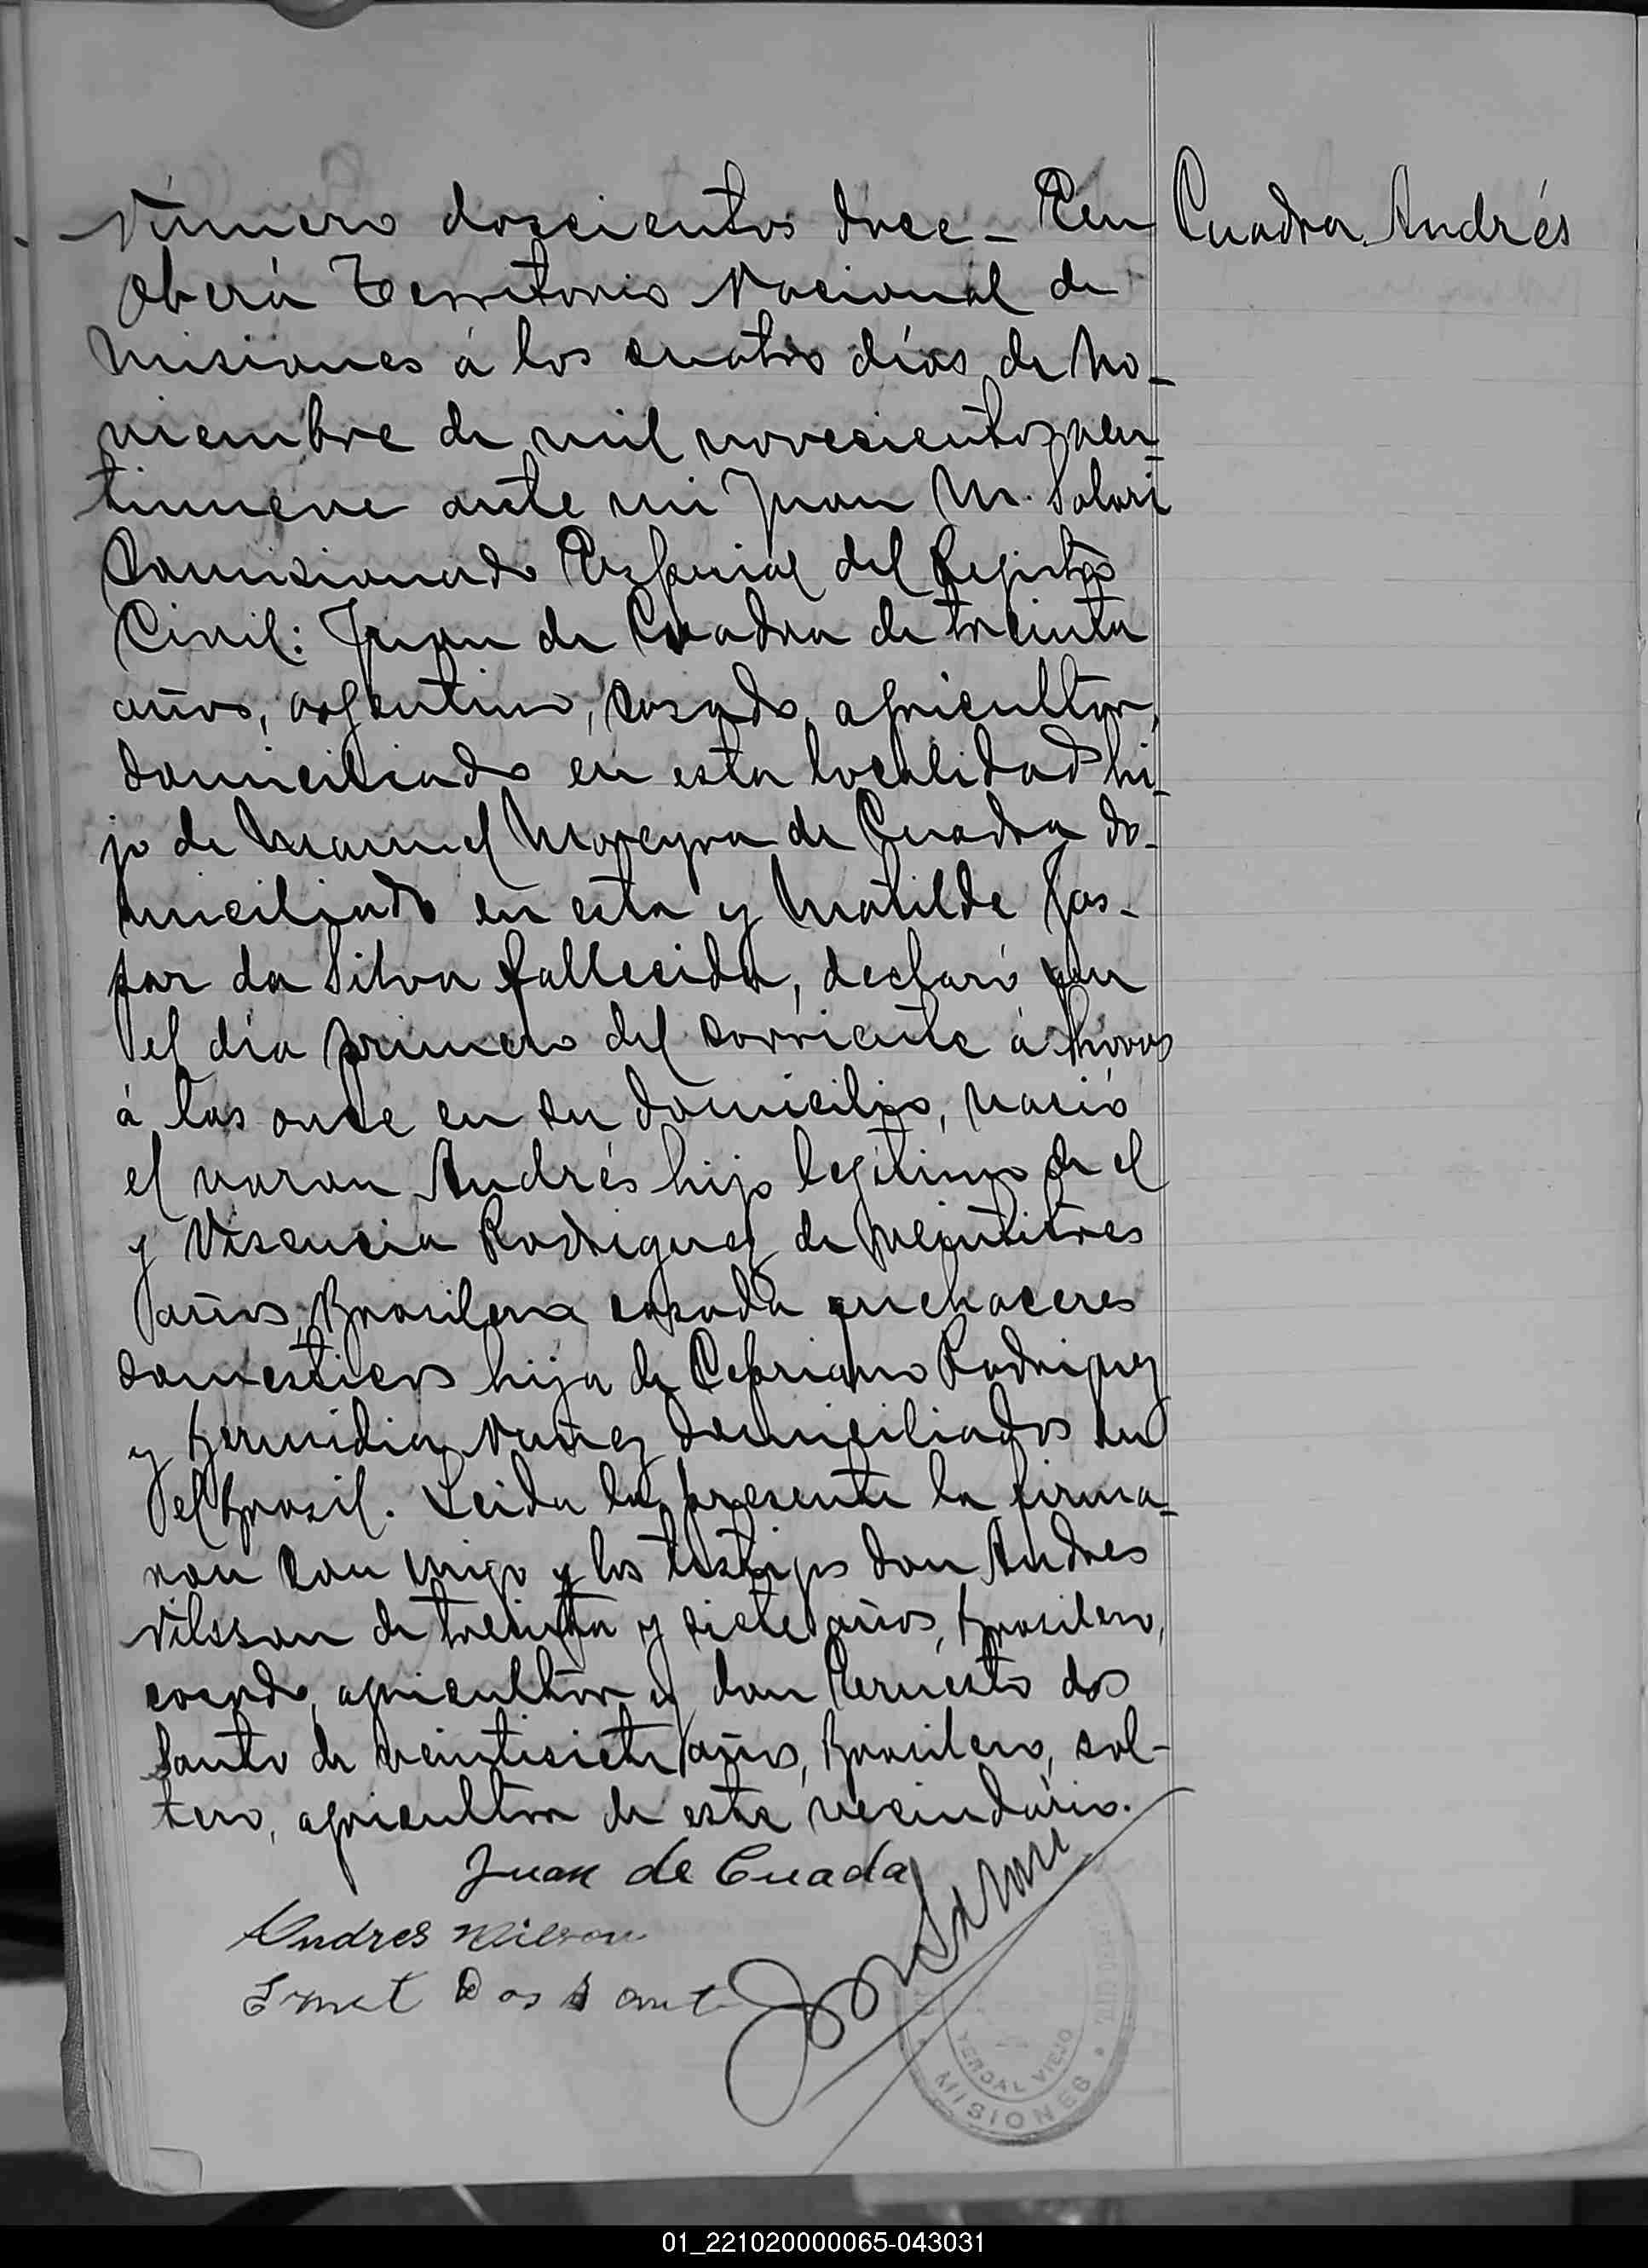 Número doscientos doce_ En
Oberá Territorio Nacional de
Misiones á los cuatro días de No_
viembre de mil novecientos vein_
tinueve ante mi Juan M. Solari
Comisionado Especial del Registro
Civil: Juan de Cuadra de treinta
años, argentino, casado, agricultor,
domiciliado en esta localidad hi_
jo de Manuel Moreyra de Cuadra do_
miciliado en esta y Matilde Gas_
par da Silva fallecida, declaró que
el día primero del corriente á horas
á las once en su domicilio, nació
el varon Andrés hijo legítimo de el
y Visencia Rodriguez de veintitres
años, Brasilera casada quehaceres
domesticos hija de Cepriano Rodriguez
y Hermidia Nuñez domiciliados en
el Brasil. Leida la presente la firma_
ron con migo y los testigos don Andres
Nilsson de treinta y siete años, Brasilero,
casado, agricultor y don Ernesto dos
Santo de veintisiete años, Brasilero, sol_
tero, agricultor de este vecindario.
Cuadra Andrés
Juan de Cuada
Andres Nilsson
Ernet Dos Sant
YERBAL VIEJO
MISIONES
01_221020000065-043031